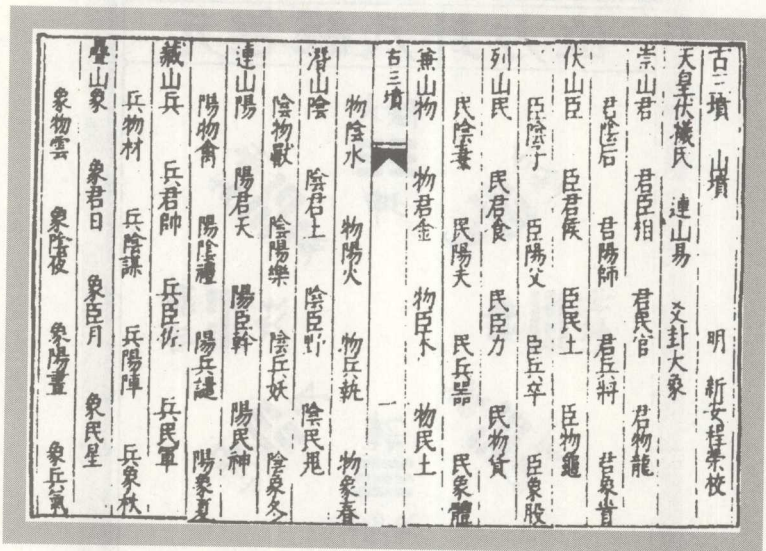 古三墳　山墳　明　新安程榮校
天皇伏犧氏　連山易　爻卦大象
崇山君　君臣相　君民官　君物龍
君陰后　君陽師　君兵將　君象首
伏山臣　臣君侯　臣民土　臣物龜
臣陰子　臣陽父　臣兵卒　臣象股
列山民　民君食　民臣力　民物貨
民陰妻　民陽夫　民兵器　民象體
兼山物　物君金　物臣木　物民土
古三墳　一
物陰水　物陽火　物兵執　物象春
潛山陰　陰君土　陰臣野　陰民鬼
陰物獸　陰陽樂　陰兵妖　陰象冬
連山陽　陽君天　陽臣幹　陽民神
陽物禽　陽陰禮　陽兵譴　陽象夏
藏山兵　兵君帥　兵臣佐　兵民軍
兵物材　兵陰謀　兵陽陣　兵象秋
疊山象　象君日　象臣月　象民星
象物雲　象陰夜　象陽晝　象兵氣